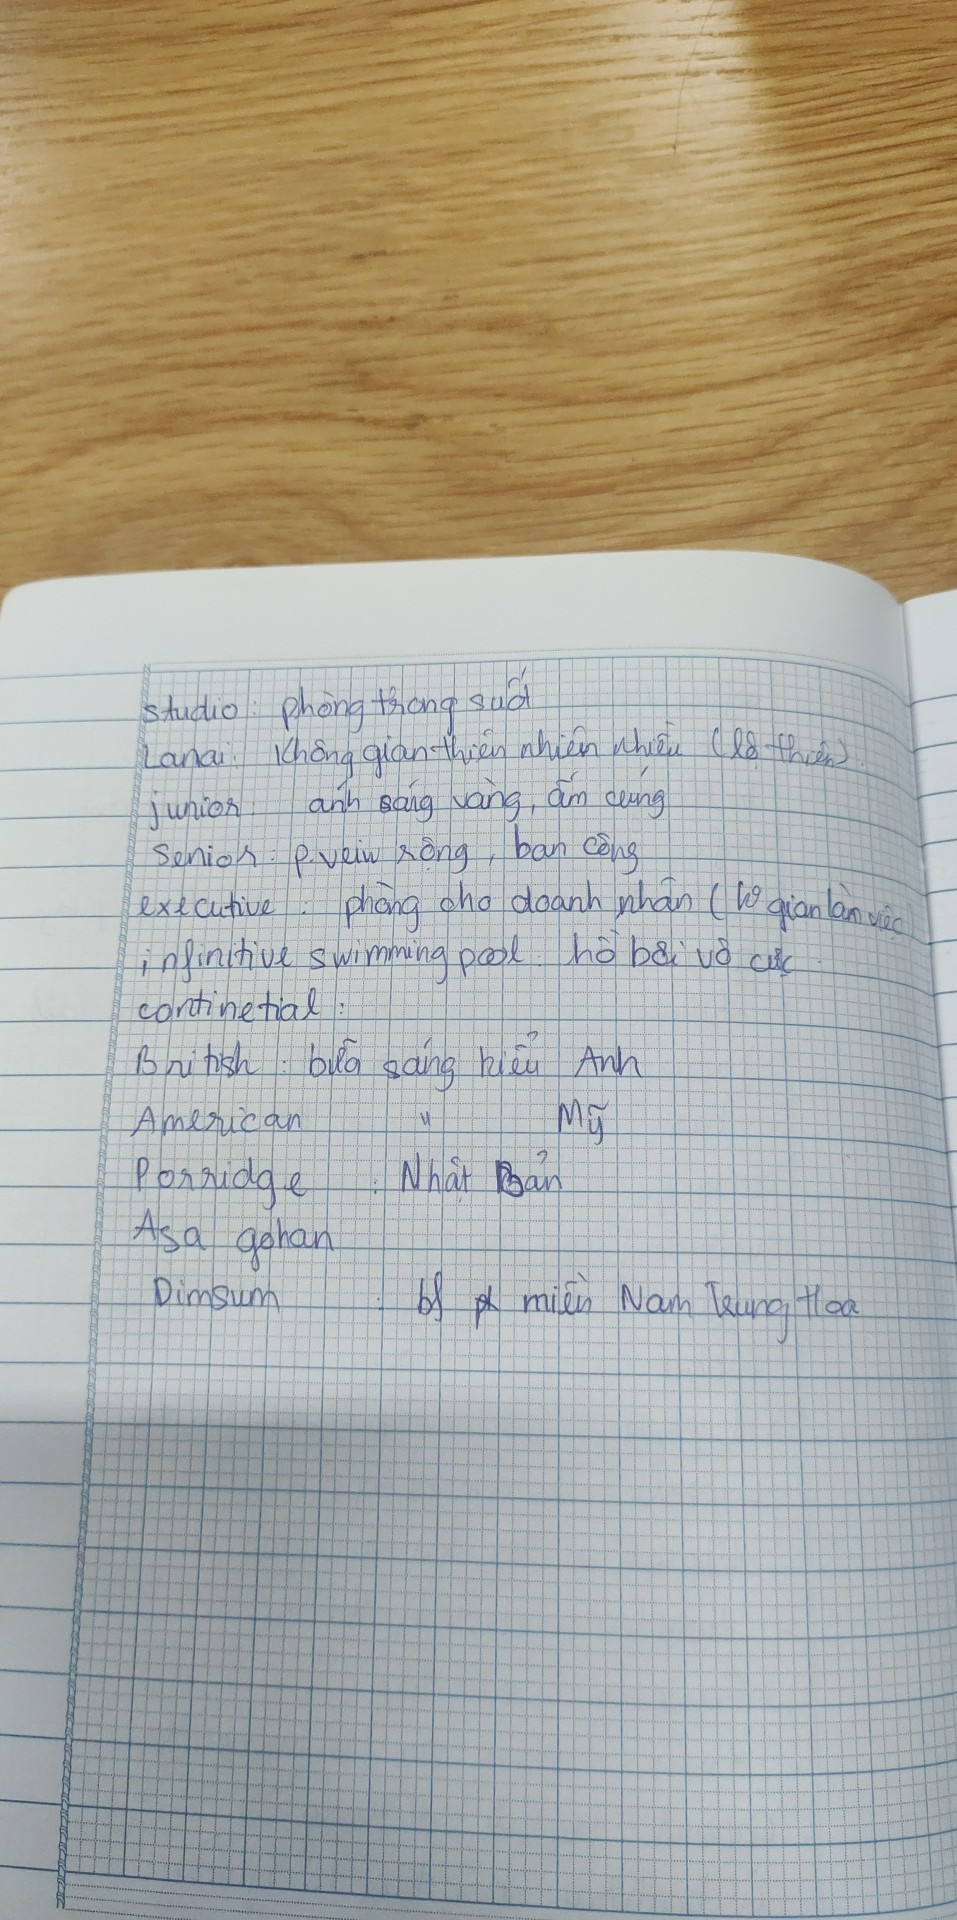 studio: phòng thông suốt
Lanai: Không gian thiên nhiên nhiều (lộ thiên).
junior: ánh sáng vàng, ấm cúng
Senior: p. veiw rộng, ban công
executive: phòng cho doanh nhân (ko gian làn việc
infinitive swimming pool: hồ bơi vô cực
continetial:
British: bữa sáng kiểu Anh
American " Mỹ
Porridge: Nhật Bản
Asa gohan
Dimsum: bf miền Nam Trung Hoa